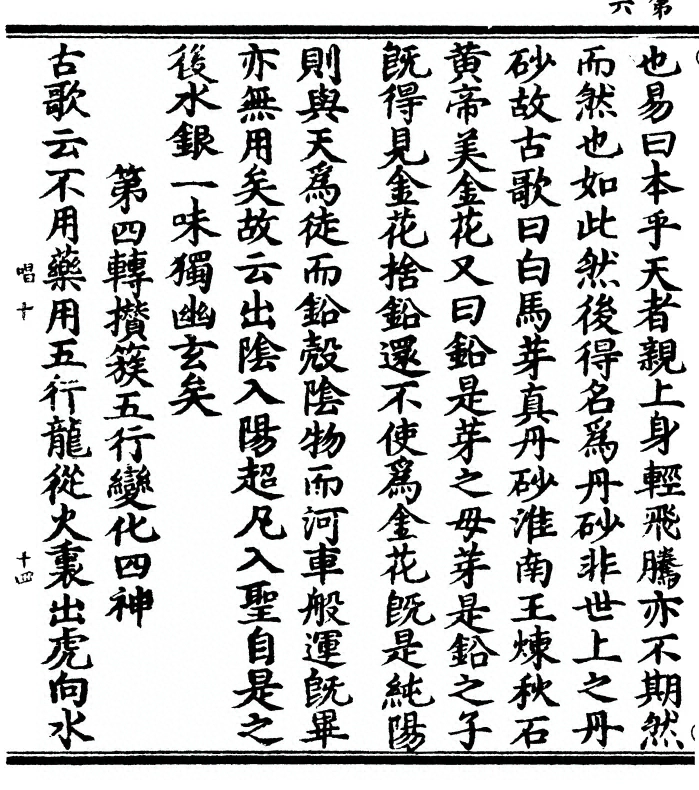 第六
也易曰本乎天者親上身輕飛騰亦不期然
而然也如此然後得名爲丹砂非世上之丹
砂故古歌曰白馬芽真丹砂淮南王煉秋石
黄帝美金花又曰鉛是芽之母芽是鉛之子
既得見金花捨鉛還不使爲金花既是純陽
則與天爲徒而鉛殼陰物而河車般運既畢
亦無用矣故云出陰入陽超凡入聖自是之
後水銀一味獨幽玄矣
第四轉攢簇五行變化四神
古歌云不用藥用五行龍從火裏出虎向水
唱十
十四